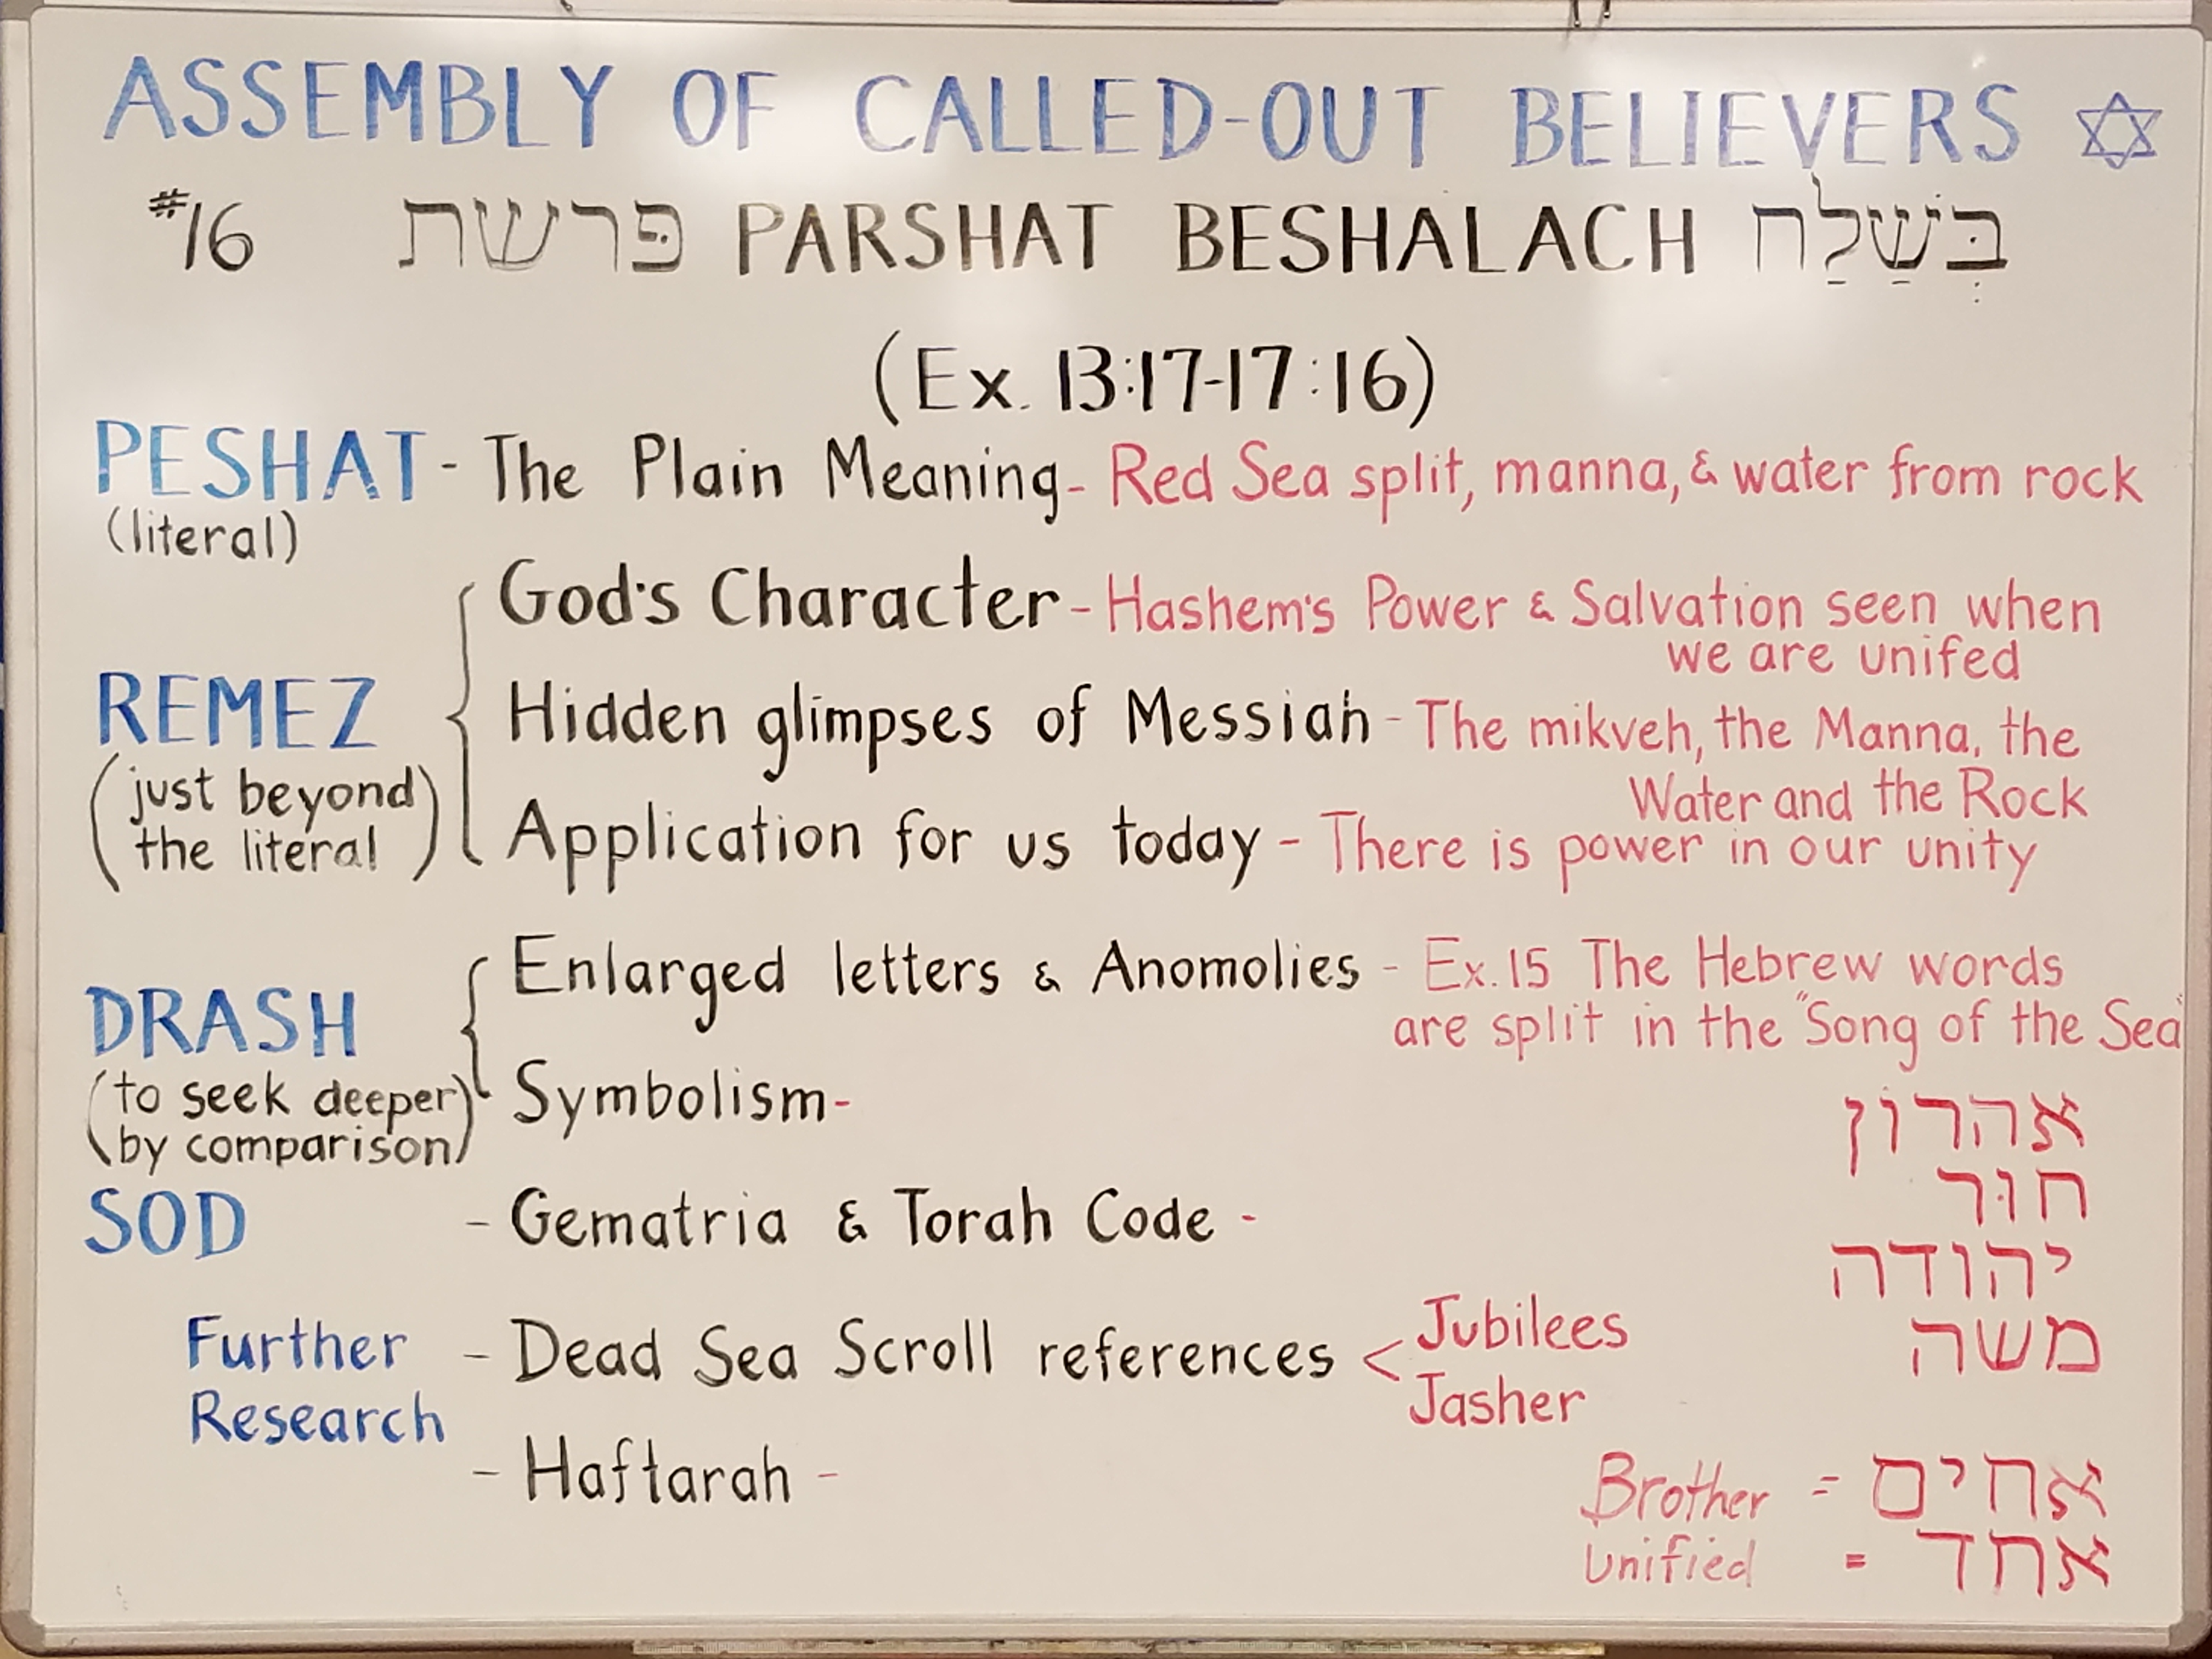 ASSEMBLY OF CALLED-OUT BELIEVERS
#16 פּרשת PARSHAT BESHALACH בְּשַׁלַּח
(Ex. 13:17-17:16)
PESHAT - The Plain Meaning - Red Sea split, manna, & water from rock
(literal)
God's Character - Hashem's Power & Salvation seen when
we are unifed
REMEZ
Hidden glimpses of Messiah - The mikveh, the Manna, the
Water and the Rock
(just beyond
the literal)
Application for us today - There is power in our unity
Enlarged letters & Anomolies - Ex. 15 The Hebrew words
are split in the "Song of the Sea"
DRASH
(to seek deeper
by comparison)
Symbolism-
אהרון
חוּר
יהודה
משה
SOD - Gematria & Torah Code -
Further
Research
- Dead Sea Scroll references < Jubilees
Jasher
- Haftarah -
Brother = אחים
Unified = אחד